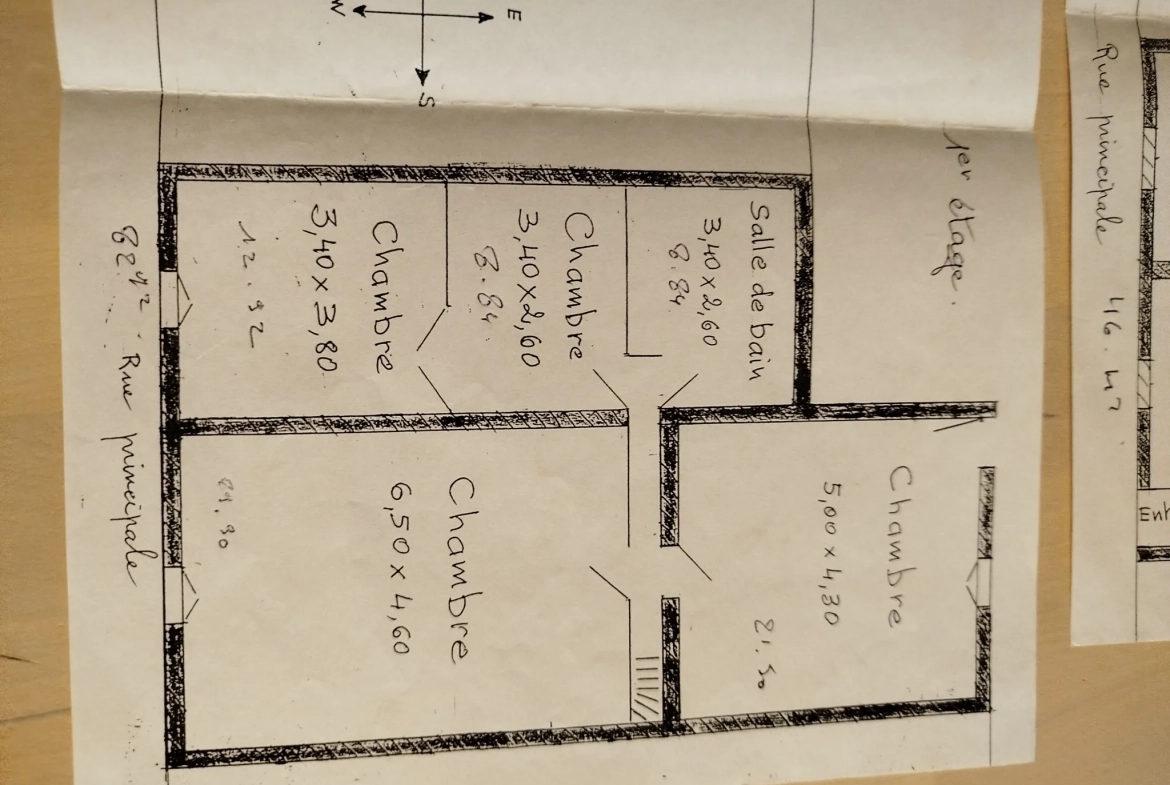 W
E
S
1er étage.
Salle de bain
3,40 x 2,60
8.84
Chambre
3,40 x 2,60
8.84
Chambre
3,40 x 3,80
12.92
Chambre
5,00 x 4,30
21.50
Chambre
6,50 x 4,60
Rue principale
Rue principale
Ent